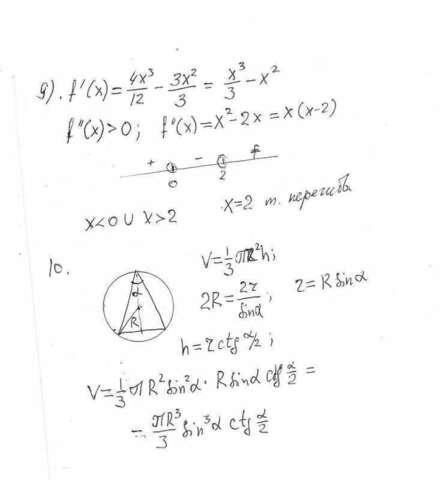 9). f'(x) = 4x³/12 - 3x²/3 = x³/3 - x²
f''(x)>0; f''(x)=x²-2x=x(x-2)
+ - +
0 2
x<0 ∪ x>2 x=2 т. перегиба
10.
V=1/3 πr²h;
α
R
2R=2r/sinα; r=R sinα
h=r ctg α/2;
V=1/3 πR² sin²α · R sinα ctg α/2 =
= πR³/3 sin³α ctg α/2